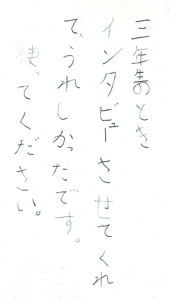 三年生のとき
インタビューさせてくれ
て、うれしかったです。
使ってください。